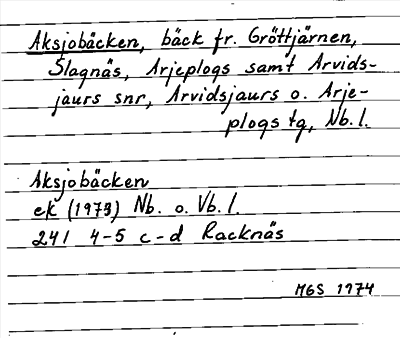 Aksjobäcken, bäck fr. Gröttjärnen,
Slagnäs, Arjeplogs samt Arvids-
jaurs snr, Arvidsjaurs o. Arje-
plogs tg, Nb. l.
Aksjobäcken
ek (1973) Nb. o. Vb. l.
241 4-5 c-d Racknäs
MGS 1974